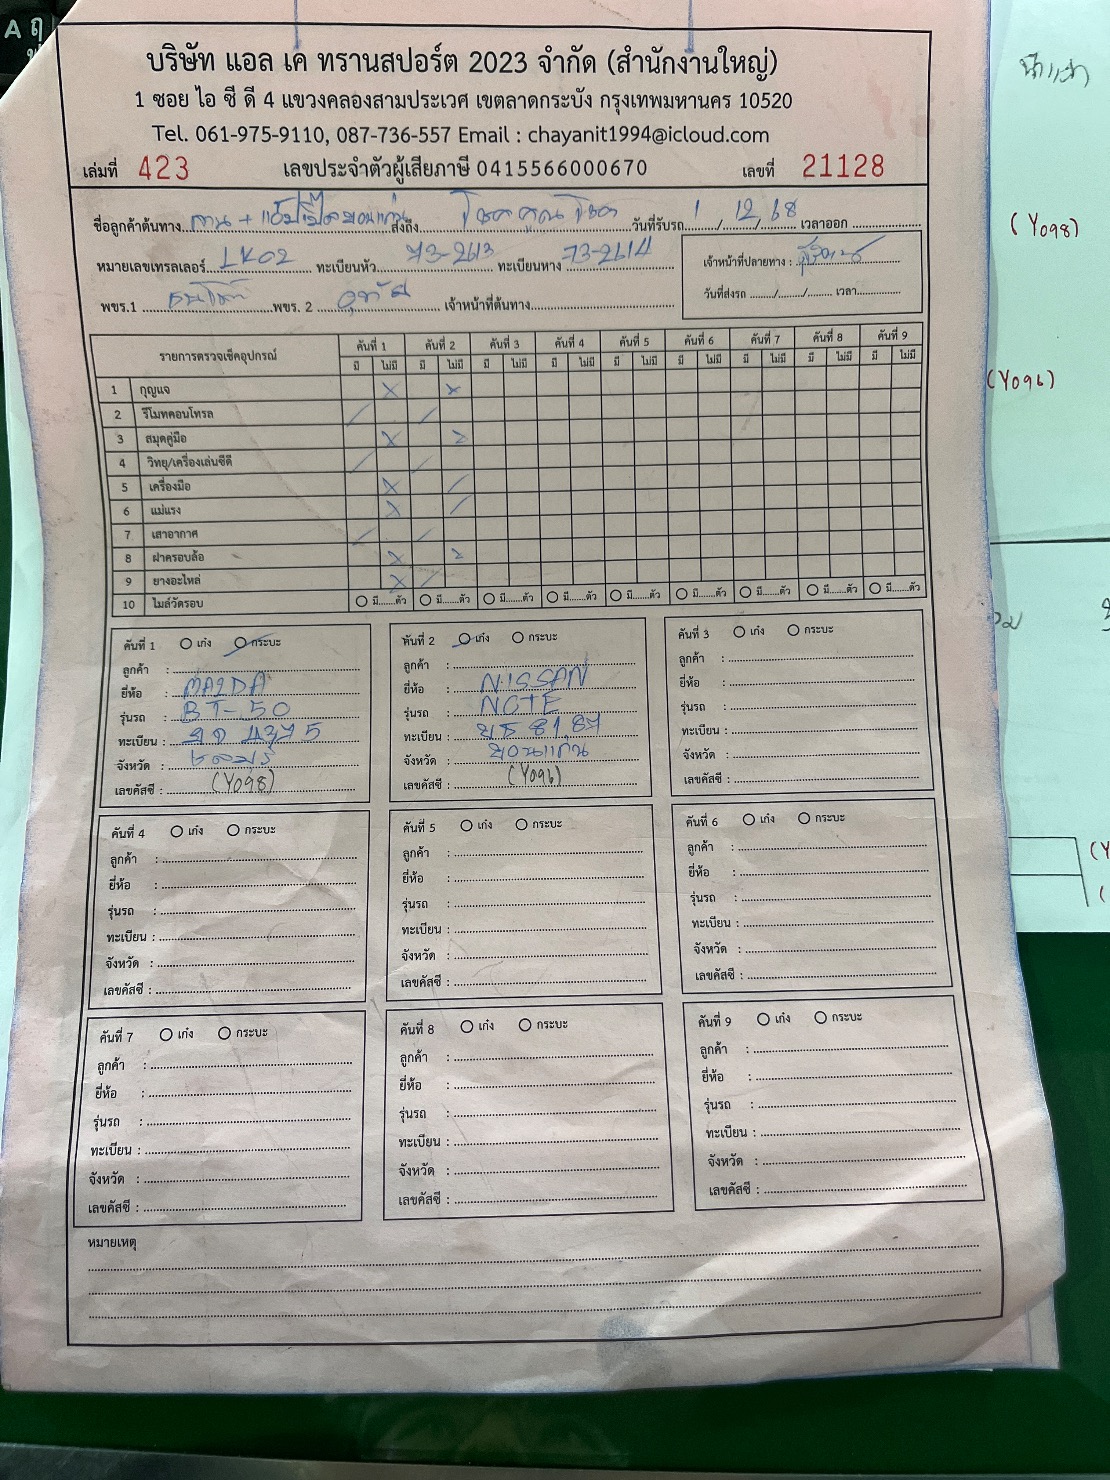 บริษัท แอล เค ทรานสปอร์ต 2023 จำกัด (สำนักงานใหญ่)
1 ซอย ไอ ซี ดี 4 แขวงคลองสามประเวศ เขตลาดกระบัง กรุงเทพมหานคร 10520
Tel. 061-975-9110, 087-736-557 Email : chayanit1994@icloud.com
เล่มที่ 423 เลขประจำตัวผู้เสียภาษี 0415566000670 เลขที่ 21128
ชื่อลูกค้าต้นทาง ส่งถึง โชคคูณโชค วันที่รับรถ 1/12/68 เวลาออก
หมายเลขเทรลเลอร์ LK02 ทะเบียนหัว 73-2613 ทะเบียนหาง 73-2614 เจ้าหน้าที่ปลายทาง :
พขร.1 พขร. 2 อุทัย เจ้าหน้าที่ต้นทาง วันที่ส่งรถ ....../....../...... เวลา
รายการตรวจเช็คอุปกรณ์ คันที่ 1 คันที่ 2 คันที่ 3 คันที่ 4 คันที่ 5 คันที่ 6 คันที่ 7 คันที่ 8 คันที่ 9
มี ไม่มี มี ไม่มี มี ไม่มี มี ไม่มี มี ไม่มี มี ไม่มี มี ไม่มี มี ไม่มี มี ไม่มี
1 กุญแจ
2 รีโมทคอนโทรล
3 สมุดคู่มือ
4 วิทยุ/เครื่องเล่นซีดี
5 เครื่องมือ
6 แม่แรง
7 เสาอากาศ
8 ฝาครอบล้อ
9 ยางอะไหล่
10 ไมล์วัดรอบ มี......ตัว มี......ตัว มี......ตัว มี......ตัว มี......ตัว มี......ตัว มี......ตัว มี......ตัว มี......ตัว
คันที่ 1 เก๋ง กระบะ
ลูกค้า :
ยี่ห้อ : MAZDA
รุ่นรถ : BT-50
ทะเบียน : 4375
จังหวัด : ชลบุรี
เลขคัสซี : (Y098)
คันที่ 2 เก๋ง กระบะ
ลูกค้า :
ยี่ห้อ : NISSAN
รุ่นรถ : NOTE
ทะเบียน : 8187
จังหวัด : ขอนแก่น
เลขคัสซี : (Y096)
คันที่ 3 เก๋ง กระบะ
ลูกค้า :
ยี่ห้อ :
รุ่นรถ :
ทะเบียน :
จังหวัด :
เลขคัสซี :
คันที่ 4 เก๋ง กระบะ
ลูกค้า :
ยี่ห้อ :
รุ่นรถ :
ทะเบียน :
จังหวัด :
เลขคัสซี :
คันที่ 5 เก๋ง กระบะ
ลูกค้า :
ยี่ห้อ :
รุ่นรถ :
ทะเบียน :
จังหวัด :
เลขคัสซี :
คันที่ 6 เก๋ง กระบะ
ลูกค้า :
ยี่ห้อ :
รุ่นรถ :
ทะเบียน :
จังหวัด :
เลขคัสซี :
คันที่ 7 เก๋ง กระบะ
ลูกค้า :
ยี่ห้อ :
รุ่นรถ :
ทะเบียน :
จังหวัด :
เลขคัสซี :
คันที่ 8 เก๋ง กระบะ
ลูกค้า :
ยี่ห้อ :
รุ่นรถ :
ทะเบียน :
จังหวัด :
เลขคัสซี :
คันที่ 9 เก๋ง กระบะ
ลูกค้า :
ยี่ห้อ :
รุ่นรถ :
ทะเบียน :
จังหวัด :
เลขคัสซี :
หมายเหตุ
(Y098)
(Y096)